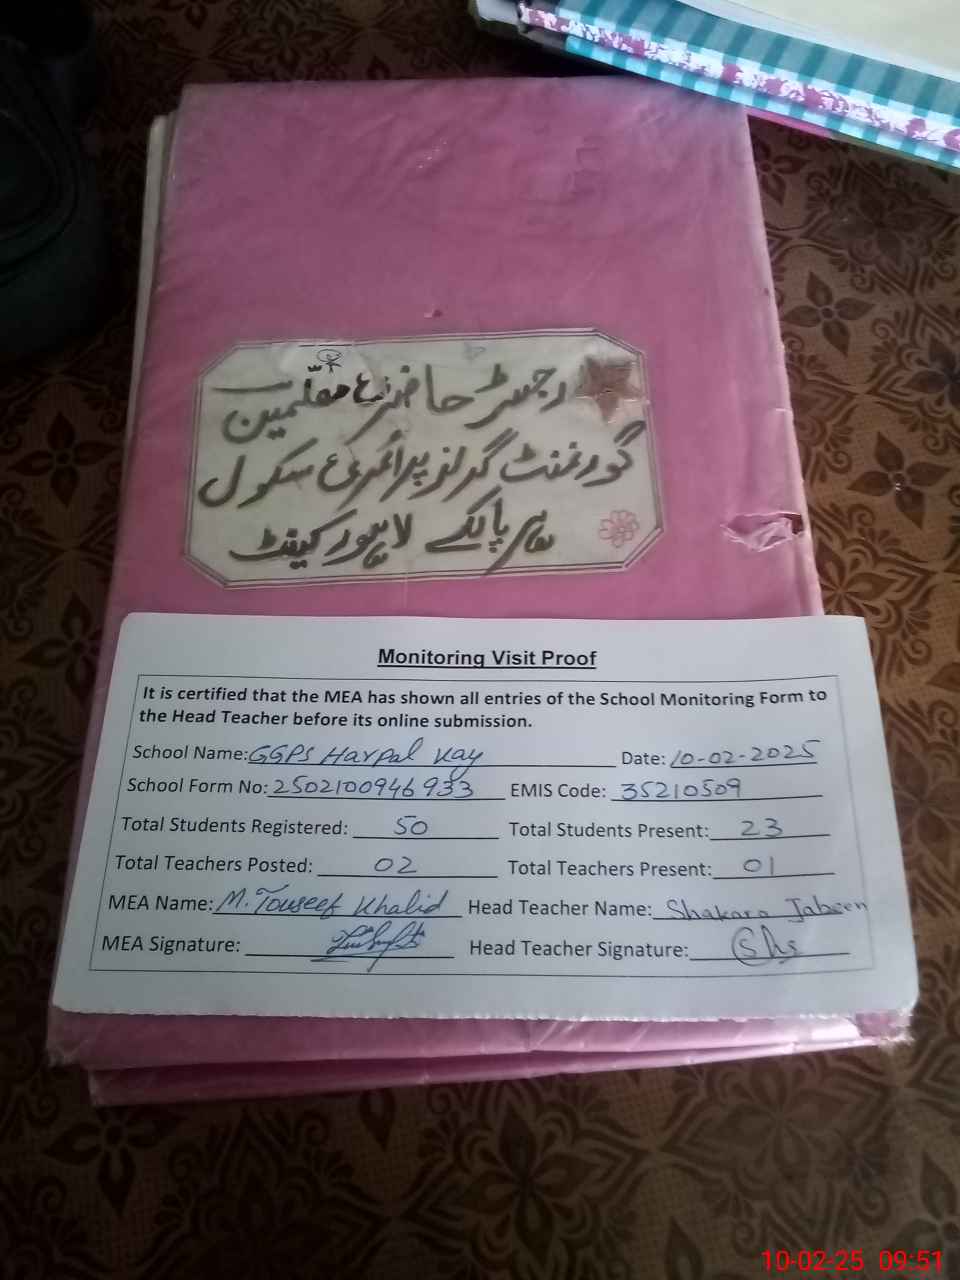 رجسٹر حاضری معلمین
گورنمنٹ گرلز پرائمری سکول
ہرپالکے لاہور کینٹ
Monitoring Visit Proof
It is certified that the MEA has shown all entries of the School Monitoring Form to
the Head Teacher before its online submission.
School Name: GGPS Harpal Kay Date: 10-02-2025
School Form No: 2502100946933 EMIS Code: 35210509
Total Students Registered: 50 Total Students Present: 23
Total Teachers Posted: 02 Total Teachers Present: 01
MEA Name: M. Touseef Khalid Head Teacher Name: Shakara Jabeen
MEA Signature: Head Teacher Signature: Shs
10-02-25 09:51